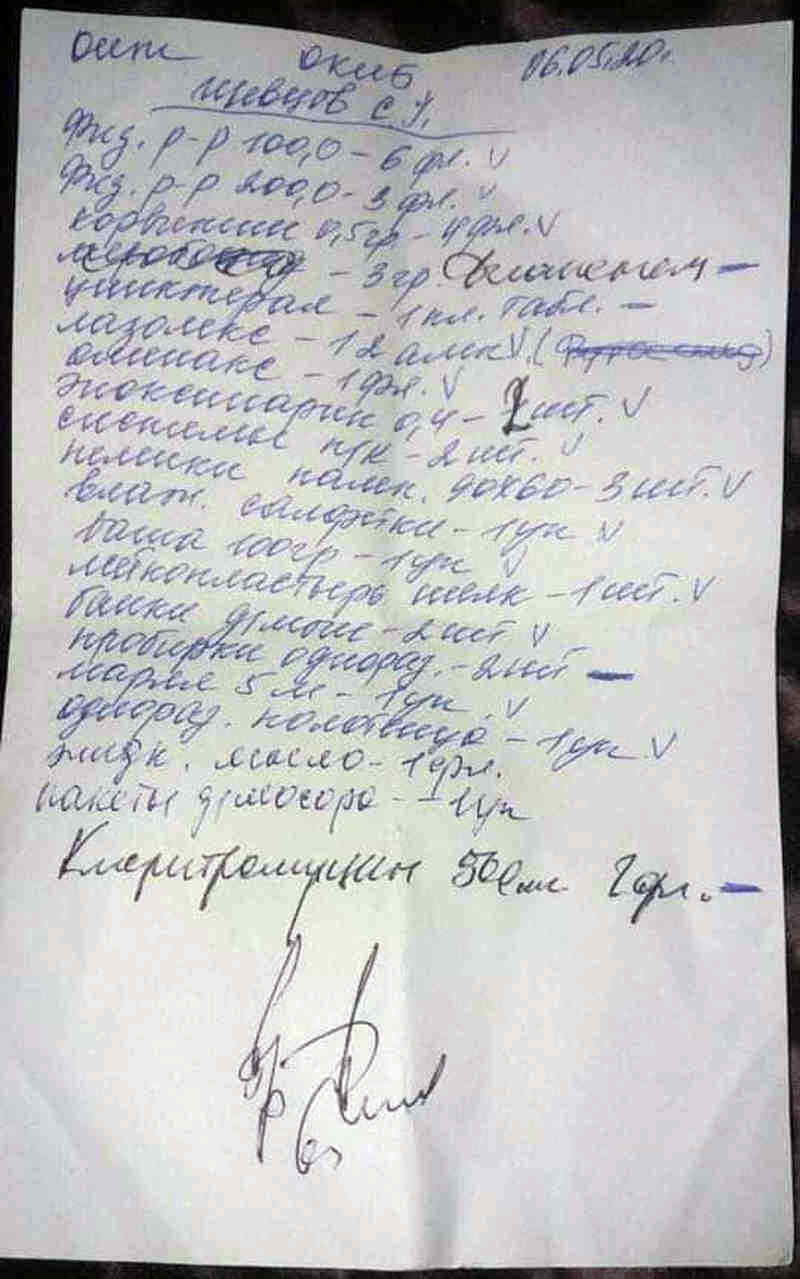 ОИТ ОКИБ 06.05.20г.
Шевцов С.И.
Физ. р-р 100,0 - 6 фл. V
Физ. р-р 200,0 - 3 фл. V
корвицин 0,5гр - 4фл. V
- 3гр. —
цинктерал - 1пл. табл. —
лазолекс - 12 амп V ( )
оминакс - 1фл. V
эноксипарин 0,4 - 2 шт. V
системы п/к - 2 шт. V
пеленки памп. 90х60 - 3 шт. V
влаж. салфетки - 1уп V
вата 100гр - 1уп V
лейкопластырь шелк - 1 шт. V
банки д/мочи - 2шт V
пробирки однораз. - 2шт —
марля 5м - 1уп. V
однораз. полотенца - 1уп. V
жидк. мыло - 1фл.
пакеты д/мусора - 1уп
Кларитромицин 500мг. 2фл. —